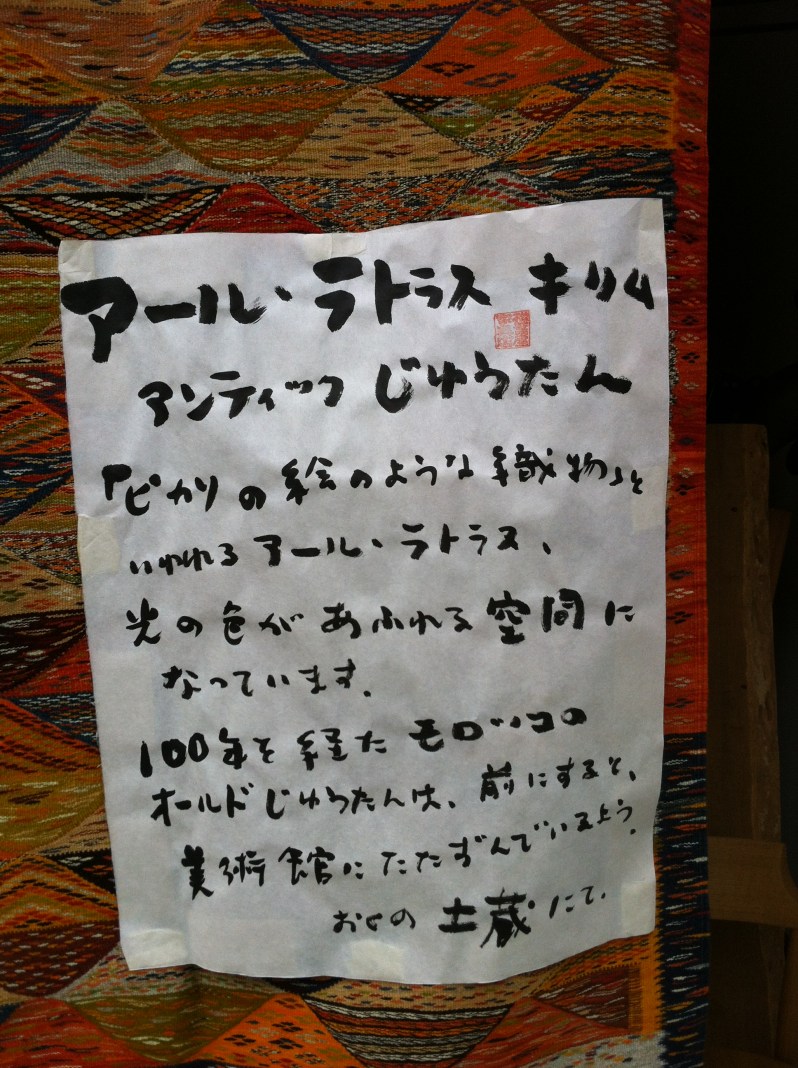 アール・ラトラス キリム
アンティック じゅうたん
「ピカソの絵のような織物」と
いわれるアール・ラトラス、
光の色があふれる空間に
なっています.
100年を経たモロッコの
オールドじゅうたんは、前にすると、
美術館にたたずんでいるよう.
おくの土蔵にて.